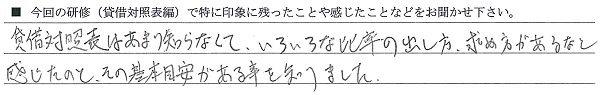 ■ 今回の研修（貸借対照表編）で特に印象に残ったことや感じたことなどをお聞かせ下さい。
貸借対照表はあまり知らなくて、いろいろな比率の出し方、求め方があるなと
感じたのと、その基本目安がある事を知りました。